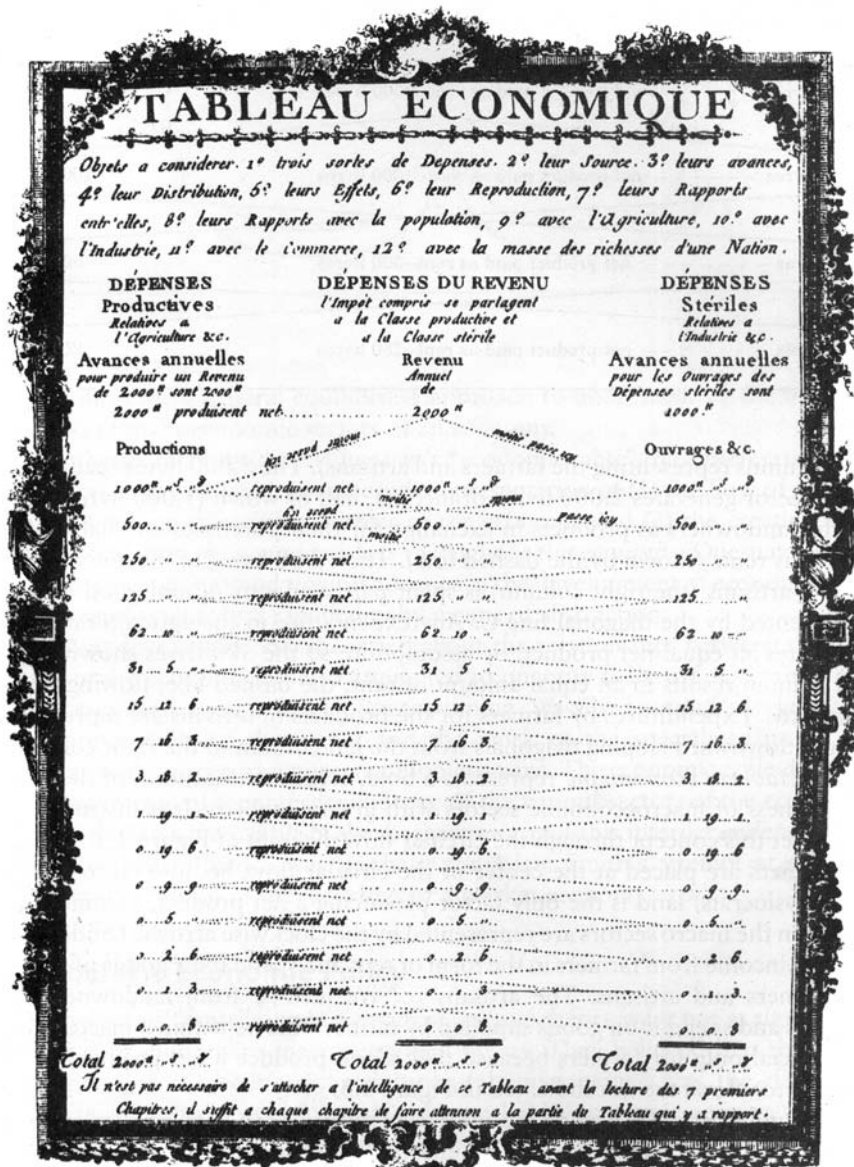 TABLEAU ECONOMIQUE
Objets a considerer. 1º trois sortes de Depenses. 2º leur Source. 3º leurs avances,
4º leur Distribution, 5º leurs Effets, 6º leur Reproduction, 7º leurs Rapports
entr'elles, 8º leurs Rapports avec la population, 9º avec l'Agriculture, 10º avec
l'Industrie, 11º avec le Commerce, 12º avec la masse des richesses d'une Nation.
DÉPENSES DÉPENSES DU REVENU DÉPENSES
Productives l'Impôt compris se partagent Stériles
Relatives a a la Classe productive et Relatives a
l'Agriculture &c. a la Classe stérile l'Industrie &c.
Avances annuelles Revenu Avances annuelles
pour produire un Revenu Annuel pour les Ouvrages des
de 2000ᵗᵗ sont 2000ᵗᵗ de Dépenses stériles sont
2000ᵗᵗ produisent net 2000ᵗᵗ 1000ᵗᵗ
Productions Ouvrages &c.
1000ᵗᵗ reproduisent net 1000ᵗᵗ 1000ᵗᵗ
moitié
500 reproduisent net 500 500
moitié passe icy
250 reproduisent net 250 250
125 reproduisent net 125 125
62 10 reproduisent net 62 10 62 10
31 5 reproduisent net 31 5 31 5
15 12 6 reproduisent net 15 12 6 15 12 6
7 16 3 reproduisent net 7 16 3 7 16 3
3 18 2 reproduisent net 3 18 2 3 18 2
1 19 1 reproduisent net 1 19 1 1 19 1
0 19 6 reproduisent net 0 19 6 0 19 6
0 9 9 reproduisent net 0 9 9 0 9 9
0 5 reproduisent net 0 5 0 5
0 2 6 reproduisent net 0 2 6 0 2 6
0 1 3 reproduisent net 0 1 3 0 1 3
0 0 8 reproduisent net 0 0 8 0 0 8
Total 2000ᵗᵗ Total 2000ᵗᵗ Total 2000ᵗᵗ
Il n'est pas nécessaire de s'attacher a l'intelligence de ce Tableau avant la lecture des 7 premiers
Chapitres, il suffit a chaque chapitre de faire attention a la partie du Tableau qui y a rapport.